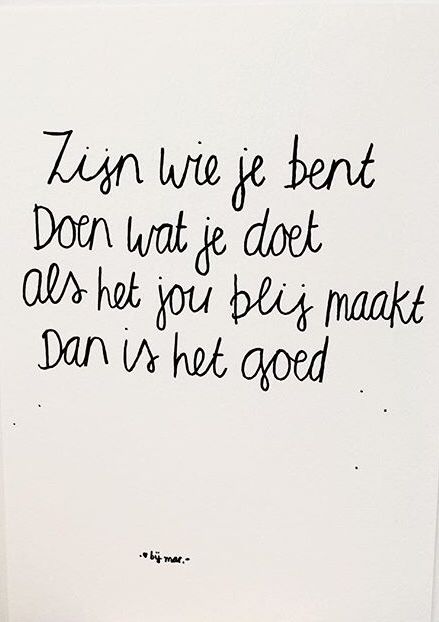 Zijn wie je bent
Doen wat je doet
als het jou blij maakt
Dan is het goed
.♥ bij mae.-